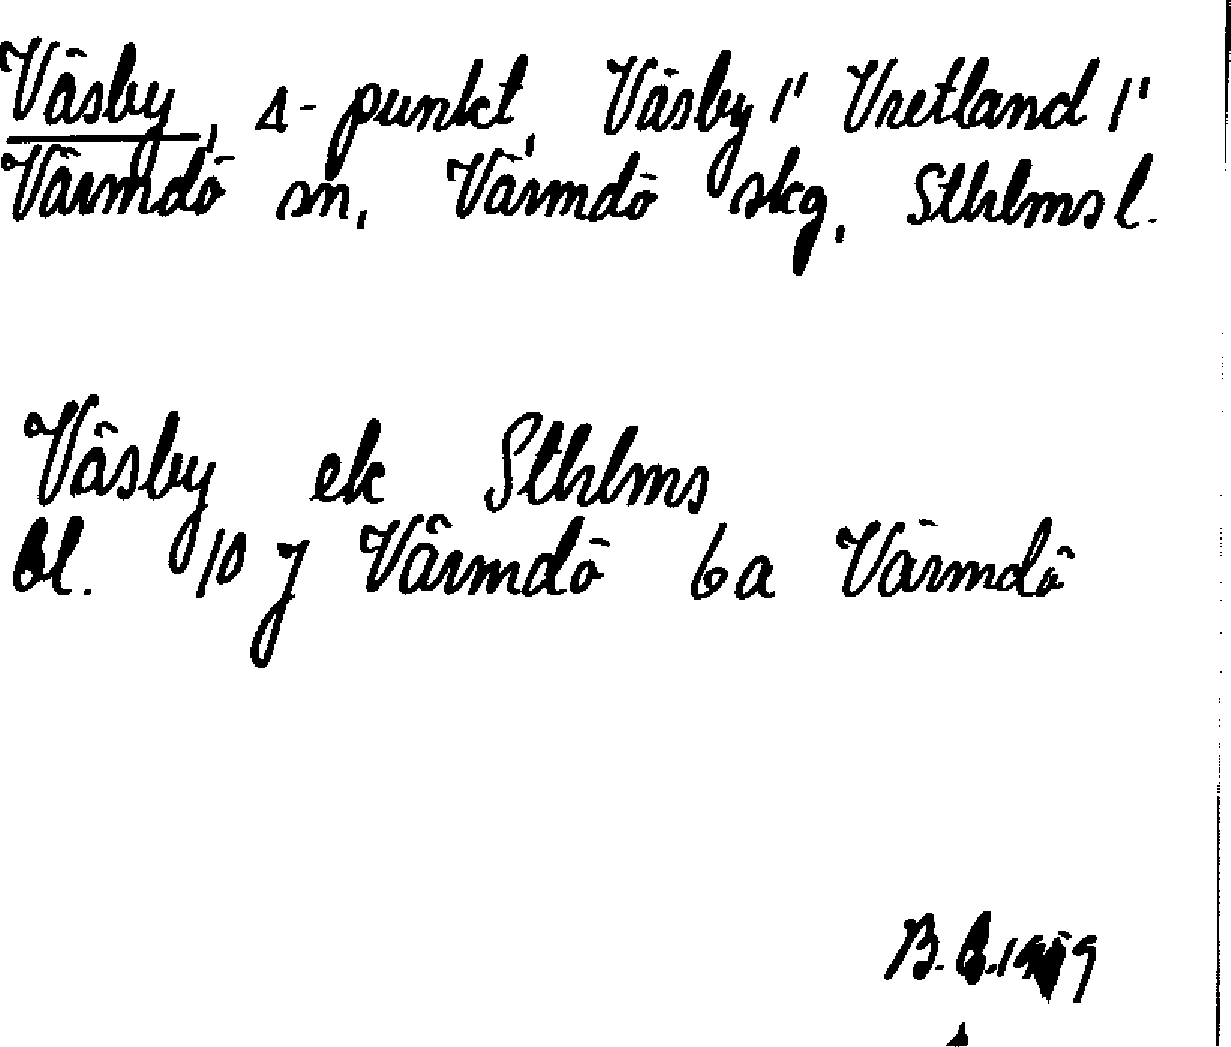 Väsby, Δ-punkt, Väsby 1" Vretland 1"
Värmdö sn, Värmdö skg, Sthlms l.
Väsby ek Sthlms
bl. 10 J Värmdö 6a Värmdö